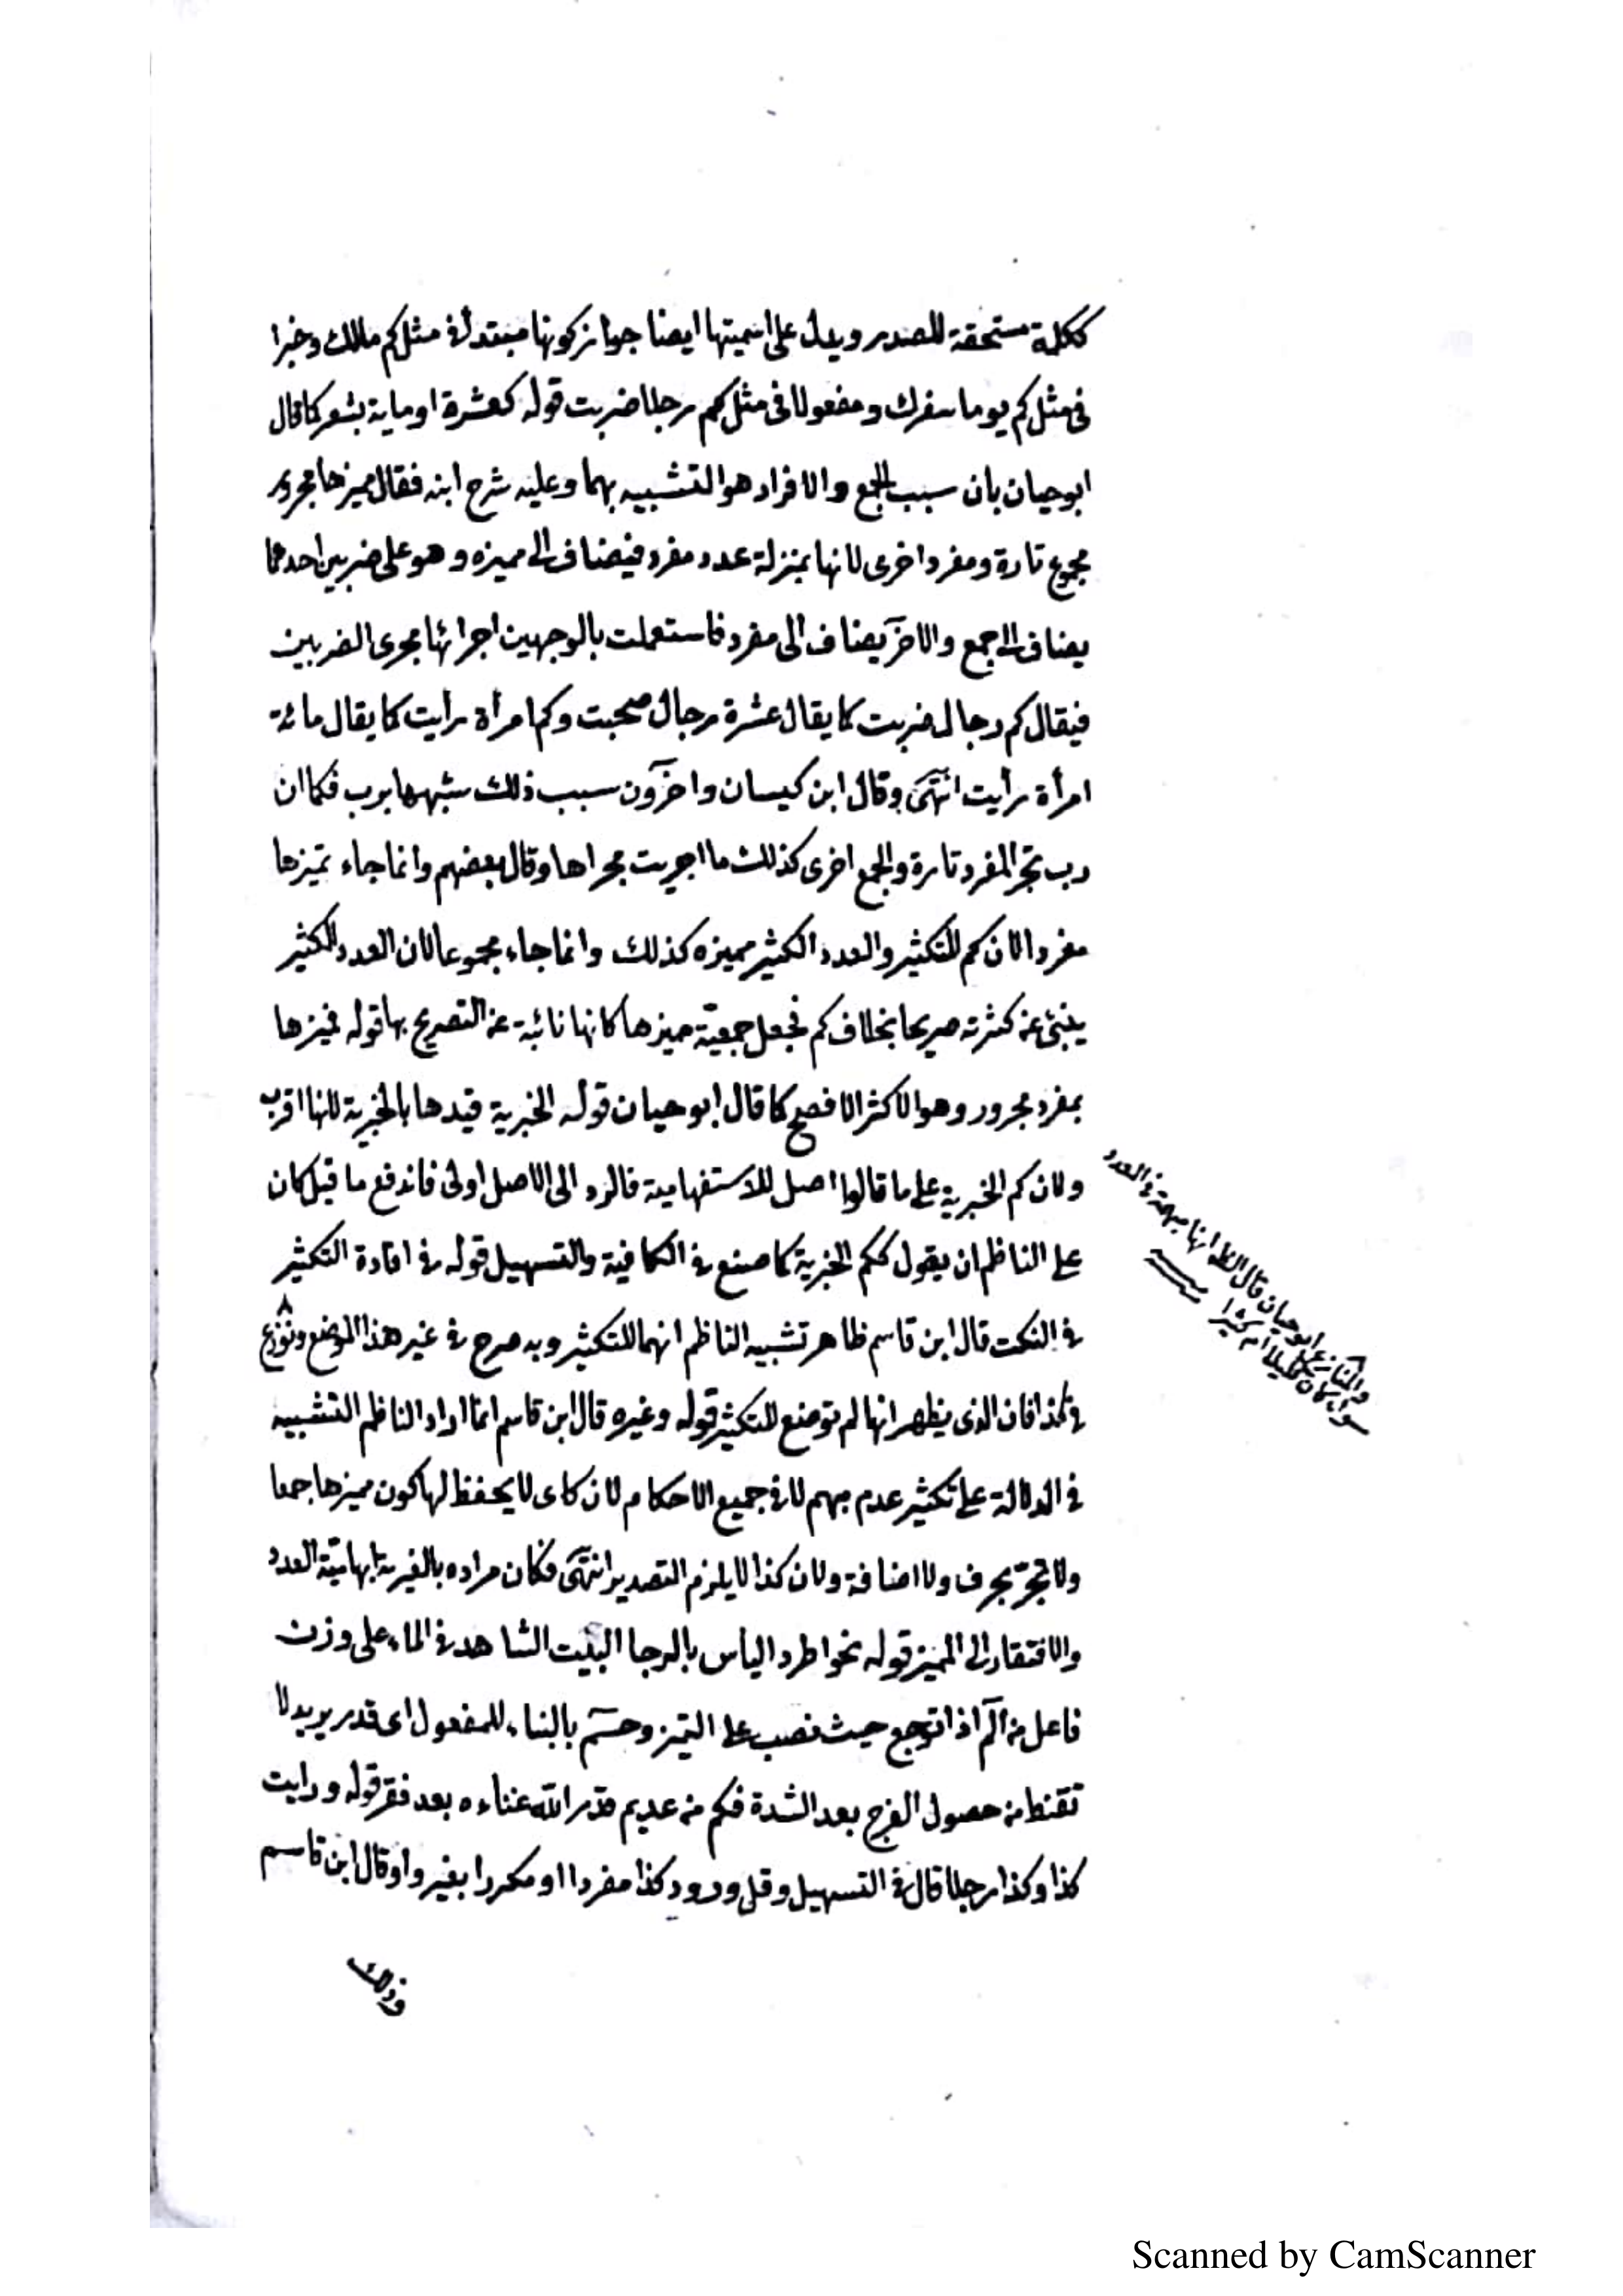 ككلة مستحقة للصدر ويدل على اسميتها ايضا جواز كونها مبتدأ في مثل كم مالك وخبرا
في مثل كم يوما سفرك ومفعولا في مثل كم رجلا ضربت قوله كعشرة او ماية يشعر كما قال
ابو حيان بان سبب الجمع والافراد هو التشبيه بهما وعليه شرح ابنه فقال مميزها مجرور
مجموع تارة ومفرد اخرى لانها بمنزلة عدد مفرد فيضاف الى مميزه وهو على ضربين احدهما
يضاف الى جمع والاخر يضاف الى مفرد فاستعملت بالوجهين اجرائها مجرى الضربين
فيقال كم رجال ضربت كما يقال عشرة رجال صحبت وكم امرأة رأيت كما يقال مائة
امرأة رأيت انتهى وقال ابن كيسان واخرون سبب ذلك شبهها برب فكما ان
رب تجر المفرد تارة والجمع اخرى كذلك ما اجريت مجراها وقال بعضهم وانما جاء تميزها
مفردا لان كم للتكثير والعدد الكثير مميزه كذلك وانما جاء مجموعا لان العدد الكثير
ينبئ عن كثرته صريحا بخلاف كم فجعل جمعية مميزها كانها نائبة عن التصريح بها قوله فميزها
بمفرد مجرور وهو الاكثر الافصح كما قال ابو حيان قوله الخبرية قيدها بالخبرية لانها اقرب
ولان كم الخبرية على ما قالوا اصل للاستفهامية فالرد الى الاصل اولى فاندفع ما قيل كان
على الناظم ان يقول ككم الخبرية كما صنع في الكافية والتسهيل قوله في افادة التكثير
في النكت قال ابن قاسم ظاهر تشبيه الناظم انهما للتكثير وبه صرح في غير هذا الموضع ونوزع
في كذا فان الذي يظهر انها لم توضع للتكثير قوله وغيره قال ابن قاسم انما اراد الناظم التشبيه
في الدلالة على تكثير عدم مبهم لا في جميع الاحكام لان كاى لا يحفظ لها كون مميزها جمعا
ولا تجر بحرف ولا اضافة ولان كذا لا يلزم التصدير انتهى فكان مراده بالغيرية ابهامية العدد
والافتقار الى المميز قوله نحو اطرد الياس بالرجا البيت الشاهد في الماء على وزن
فاعل من آلم اذا توجع حيث نصب على التميز وحتم بالبناء للمفعول اى قدر يريد لا
تقنط من حصول الفرج بعد الشدة فكم من عديم قدر الله غناءه بعد فقر قوله ورايت
كذا وكذا رجلا قال في التسهيل وقل ورود كذا مفردا او مكررا بغير واو قال ابن قاسم
وذلك
والمنازع ابو حيان قال الظ انها مبهمة في العدد
سواء كان قليلا ام كثيرا
Scanned by CamScanner